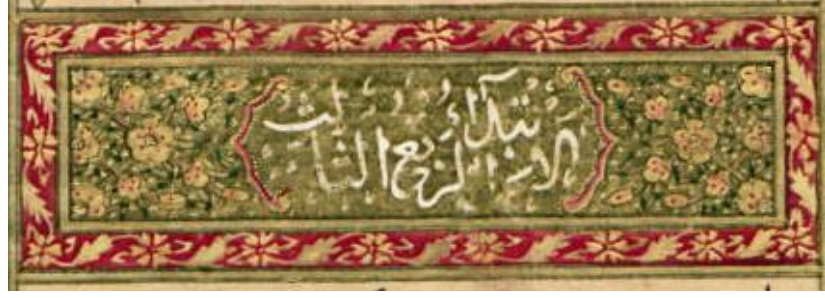 الابتدآء الربع الثالث